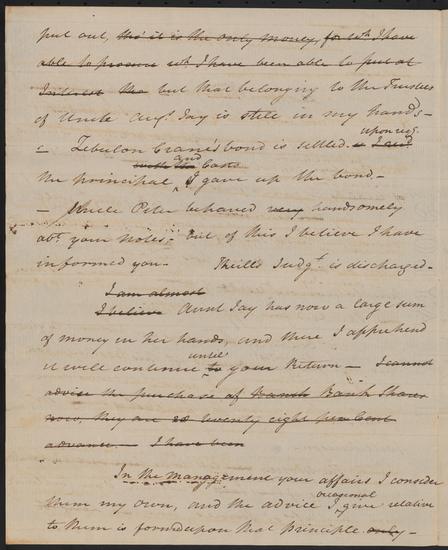 put out, tho' it is the only money, for wh. I have
able to procure wh. I have been able to put at
Interest tho but that belonging to the Trustees
of Uncle Augs. Jay is still in my hands –
– Zebulon Crane's bond is settled.
upon recg.
and Cost
the principal, I gave up the bond –
– Uncle Peter behaved very handsomely
abt. your Notes – but of this I believe I have
informed you – Judgt. is discharged –
I am almost
I believe Aunt Jay has now a large sum
of money in her hands, and there I apprehend
until
it will continue to your Return – I cannot
advise the purchase of Bank Shares
now, they are twenty eight per Cent
advance. – I have been
In the management your affairs I consider
them my own, and the advice I give relative
occasional
to them is formed upon that Principle only –